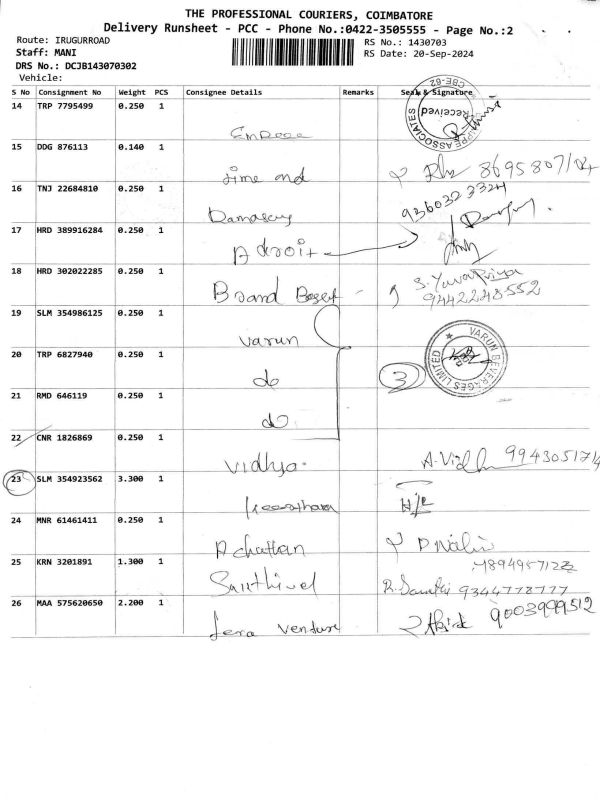 THE PROFESSIONAL COURIERS, COIMBATORE
Delivery Runsheet - PCC - Phone No.:0422-3505555 - Page No.:2
Route: IRUGURROAD
RS No.: 1430703
Staff: MANI
RS Date: 20-Sep-2024
DRS No.: DCJB143070302
Vehicle:
S No Consignment No Weight PCS Consignee Details Remarks Seal & Signature
14 TRP 7795499 0.250 1
Received
CBE-62
ASSOCIATES
15 DDG 876113 0.140 1
time and
16 TNJ 22684810 0.250 1
9360323324
17 HRD 389916284 0.250 1
Adroit
18 HRD 302022285 0.250 1
Brand
S. Yuva Priya
9442248552
19 SLM 354986125 0.250 1
varun
20 TRP 6827940 0.250 1
do
3
VARUN BEVERAGES LIMITED
21 RMD 646119 0.250 1
do
22 CNR 1826869 0.250 1
vidhya
23 SLM 354923562 3.300 1
24 MNR 61461411 0.250 1
25 KRN 3201891 1.300 1
9344778777
26 MAA 575620650 2.200 1
venture
9003999512